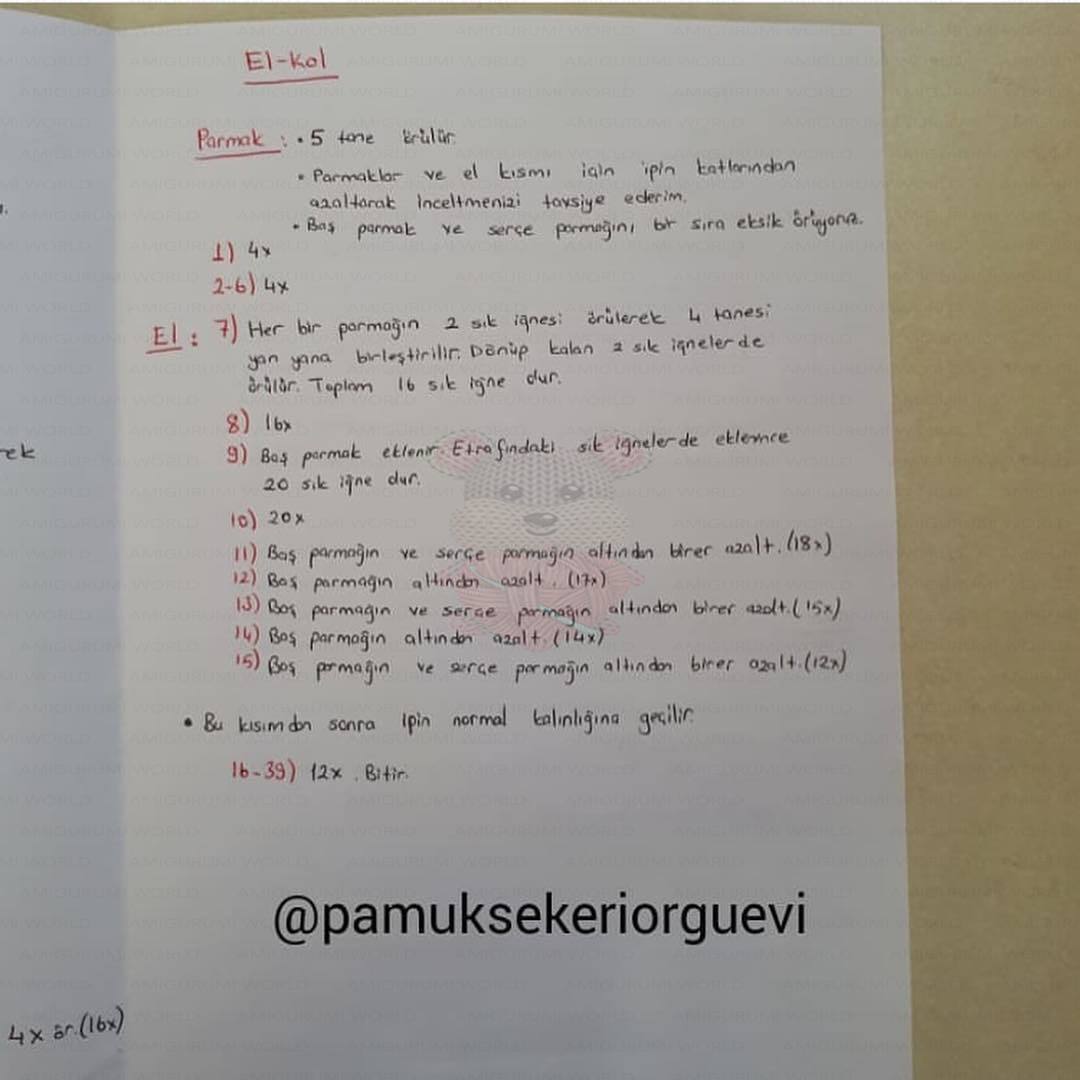 El-Kol
Parmak : • 5 tane örülür.
• Parmaklar ve el kısmı için ipin katlarından
azaltarak inceltmenizi tavsiye ederim.
• Baş parmak ve serçe parmağını bir sıra eksik örüyoruz.
1) 4x
2-6) 4x
El : 7) Her bir parmağın 2 sık iğnesi örülerek 4 tanesi
yan yana birleştirilir. Dönüp kalan 2 sık iğnelerde
örülür. Toplam 16 sık iğne dur.
8) 16x
9) Baş parmak eklenir. Etrafındaki sık iğnelerde eklenince
20 sık iğne dur.
10) 20x
11) Baş parmağın ve serçe parmağın altından birer azalt. (18x)
12) Baş parmağın altından azalt. (17x)
13) Baş parmağın ve serçe parmağın altından birer azalt. (15x)
14) Baş parmağın altından azalt. (14x)
15) Baş parmağın ve serçe parmağın altından birer azalt. (12x)
• Bu kısımdan sonra ipin normal kalınlığına geçilir.
16-39) 12x . Bitir.
@pamuksekeriorguevi
rek
4x ör. (16x)
AMIGURUMI WORLD